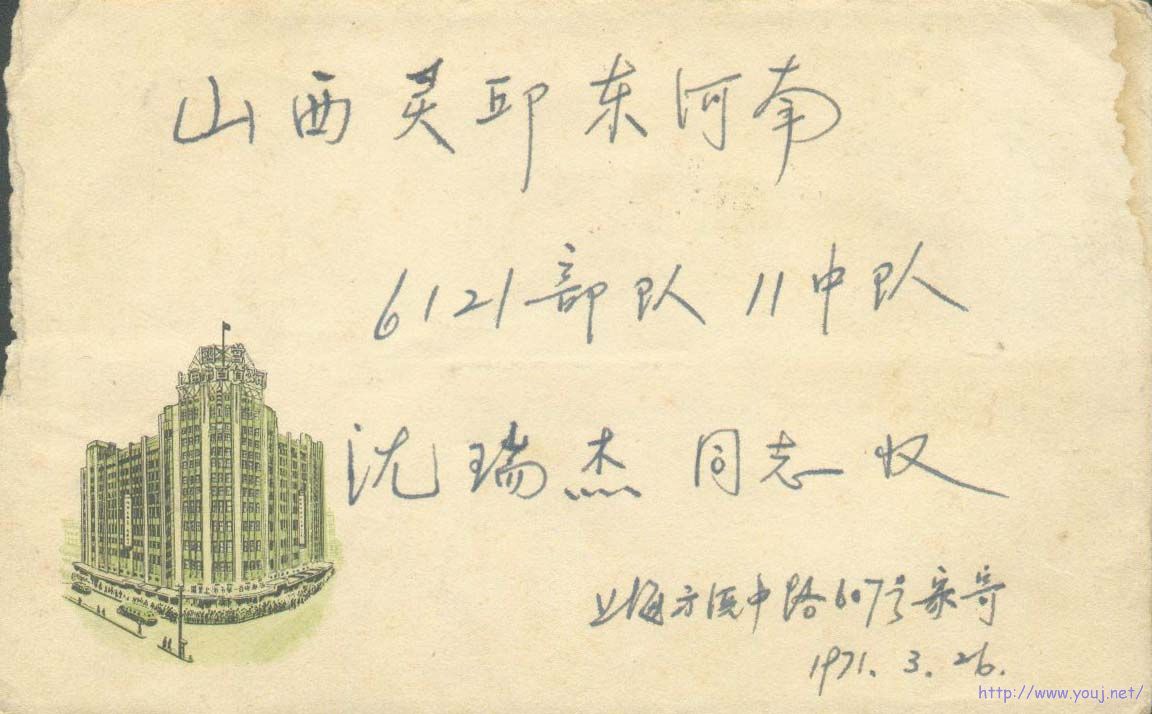 山西灵邱东河南
6121部队 11中队
沈瑞杰 同志 收
上海方浜中路607号家寄
1971.3.26.
http://www.youj.net/